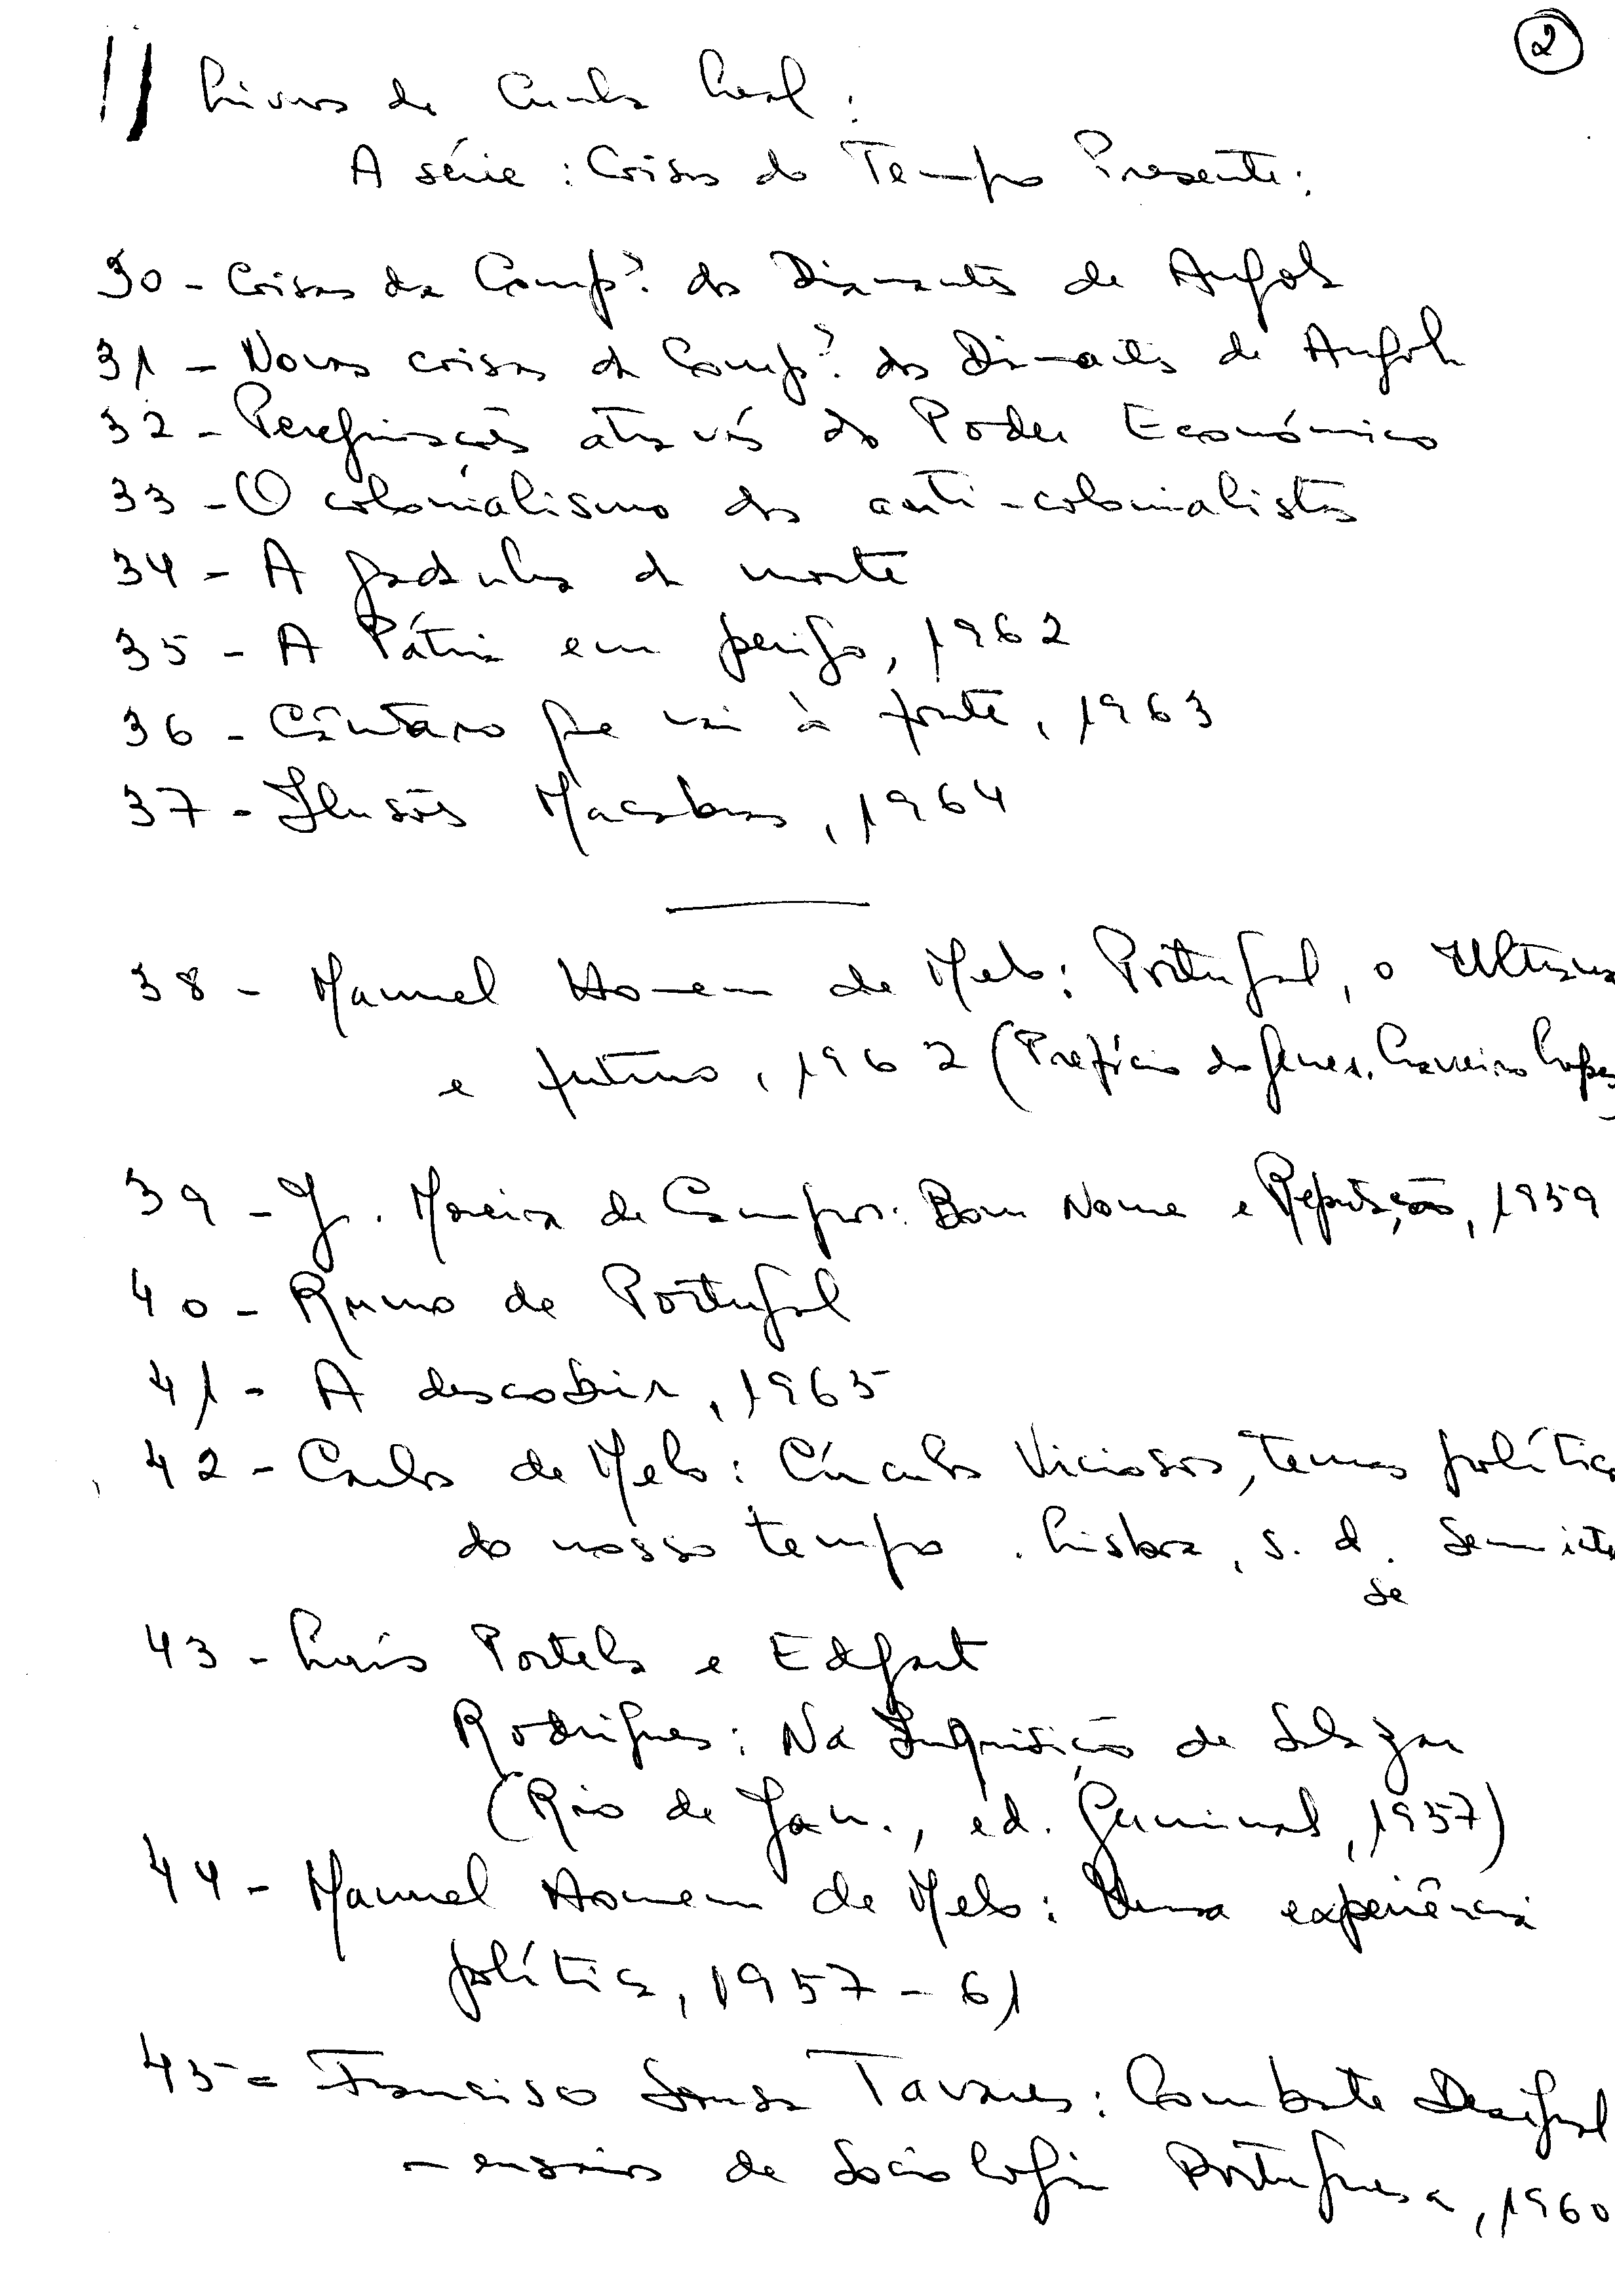 2
Livros de Cunha Leal:
A série: Coisas do Tempo Presente:
30 - Coisas da Compª. dos Diamantes de Angola
31 - Novas coisas da Compª. dos Diamantes de Angola
32 - Peregrinações através do Poder Económico
33 - O colonialismo dos anti-colonialistas
34 - A gadanha da morte
35 - A Pátria em perigo, 1962
36 - Cântaro que vai à fonte, 1963
37 - Ilusões Macabras, 1964
38 - Manuel Homem de Melo: Portugal, o Ultrama
e futuro, 1962 (Prefácio do gener. Craveiro Lopes
39 - J. Moreira de Campos: Bom Nome e Reputação, 1959
40 - Rumo de Portugal
41 - A descobrir, 1965
42 - Carlos de Melo: Círculos Viciosos, temas polític
do nosso tempo. Lisboa, s. d.
se
43 - Luís Portela e Edgart
Rodrigues: Na Inquisição de Salazar
(Rio de Jan., ed. Germinal, 1957)
44 - Manuel Homem de Melo: Uma experiência
política, 1957-61
45 = Francisco Sousa Tavares: Combate Desigual
- ensaios de Sociologia Portuguesa, 1960